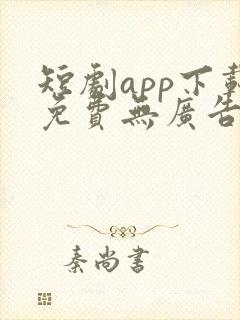 短劇app下載
免費無廣告
秦尚書